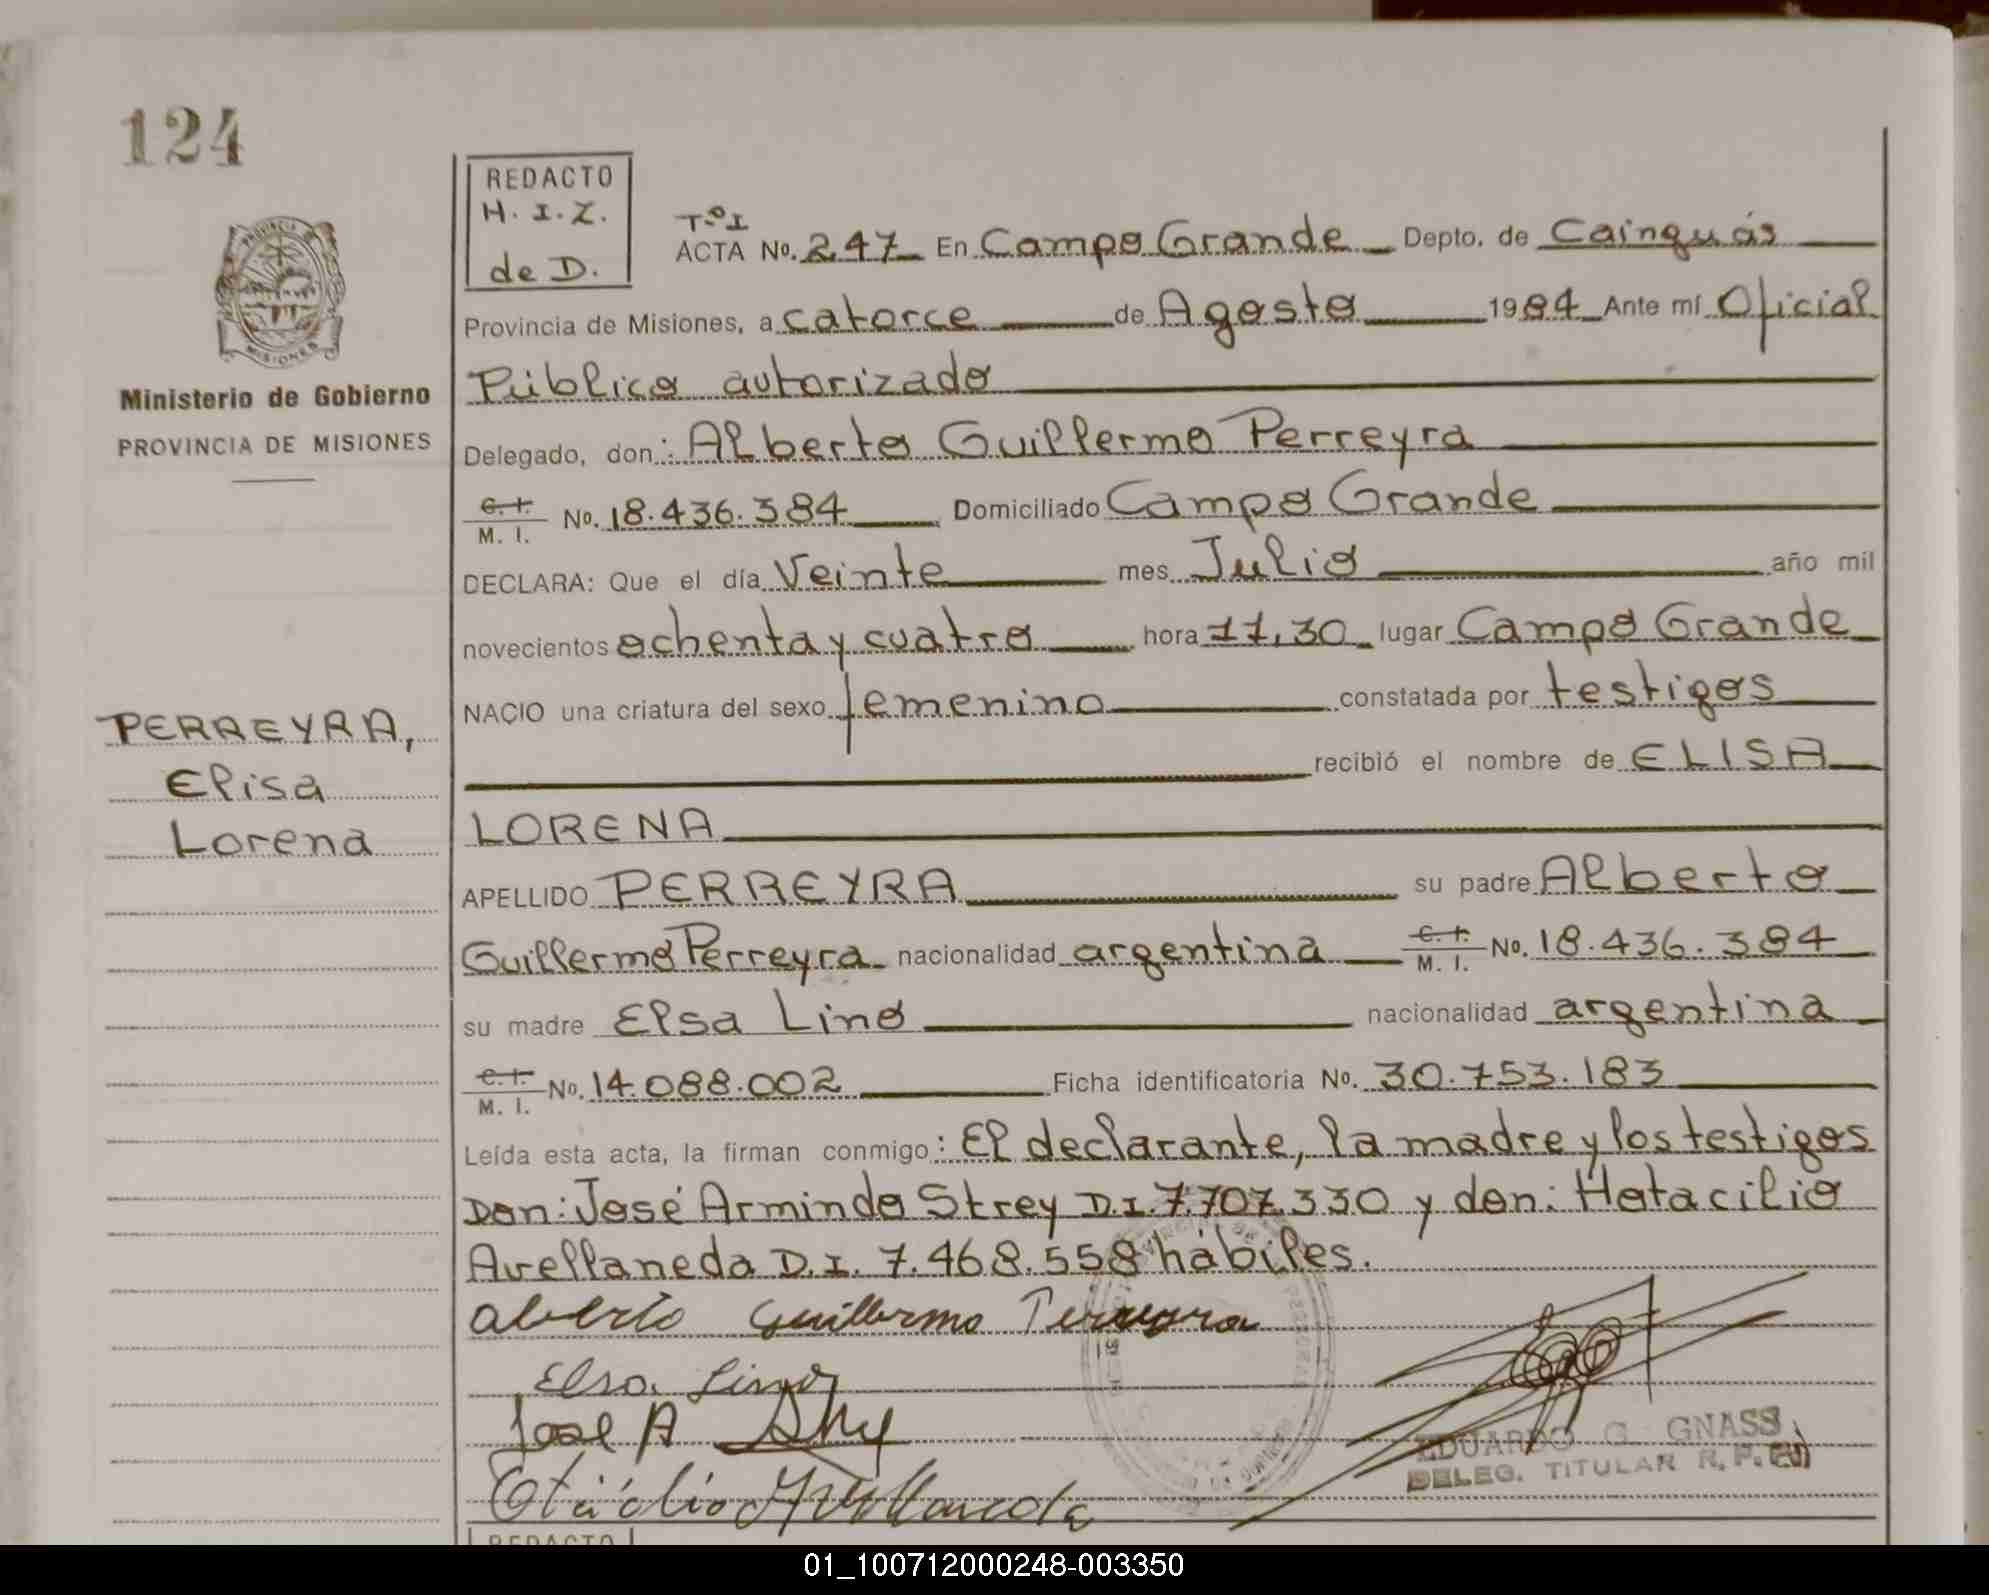 124
REDACTO
H. I. Z.
de D.
T.º I
ACTA No. 247 En Campo Grande Depto. de Cainguás
Provincia de Misiones, a catorce de Agosto 1984 Ante mí Oficial
Público autorizado
Ministerio de Gobierno
PROVINCIA DE MISIONES
Delegado, don: Alberto Guillermo Perreyra
C. I. M. I. No. 18.436.384 Domiciliado Campo Grande
DECLARA: Que el día Veinte mes Julio año mil
novecientos ochenta y cuatro hora 11,30 lugar Campo Grande
NACIO una criatura del sexo femenino constatada por testigos
PERREYRA,
Elisa
Lorena
recibió el nombre de ELISA
LORENA
APELLIDO PERREYRA su padre Alberto
Guillermo Perreyra nacionalidad argentina C. I. M. I. No. 18.436.384
su madre Elsa Lino nacionalidad argentina
C. I. M. I. No. 14.088.002 Ficha identificatoria No. 30.753.183
Leída esta acta, la firman conmigo: El declarante, la madre y los testigos
Don: José Armindo Strey D.I. 7.707.330 y don: Hotacilio
Avellaneda D.I. 7.468.558 hábiles.
Alberto Guillermo Perreyra
Elsa Lino
José A
EDUARDO G. GNASS
DELEG. TITULAR R. P.
REDACTO
01_100712000248-003350